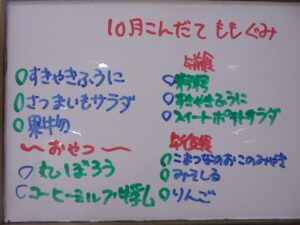 10月こんだて ももぐみ
○すきやきふうに
○さつまいもサラダ
○果物
〜おやつ〜
○丸ぼうろ
○コーヒーミルク牛乳
○すきやきふうに
○スイートポテトサラダ
○こまつなのおこのみやき
○みそしる
○りんご